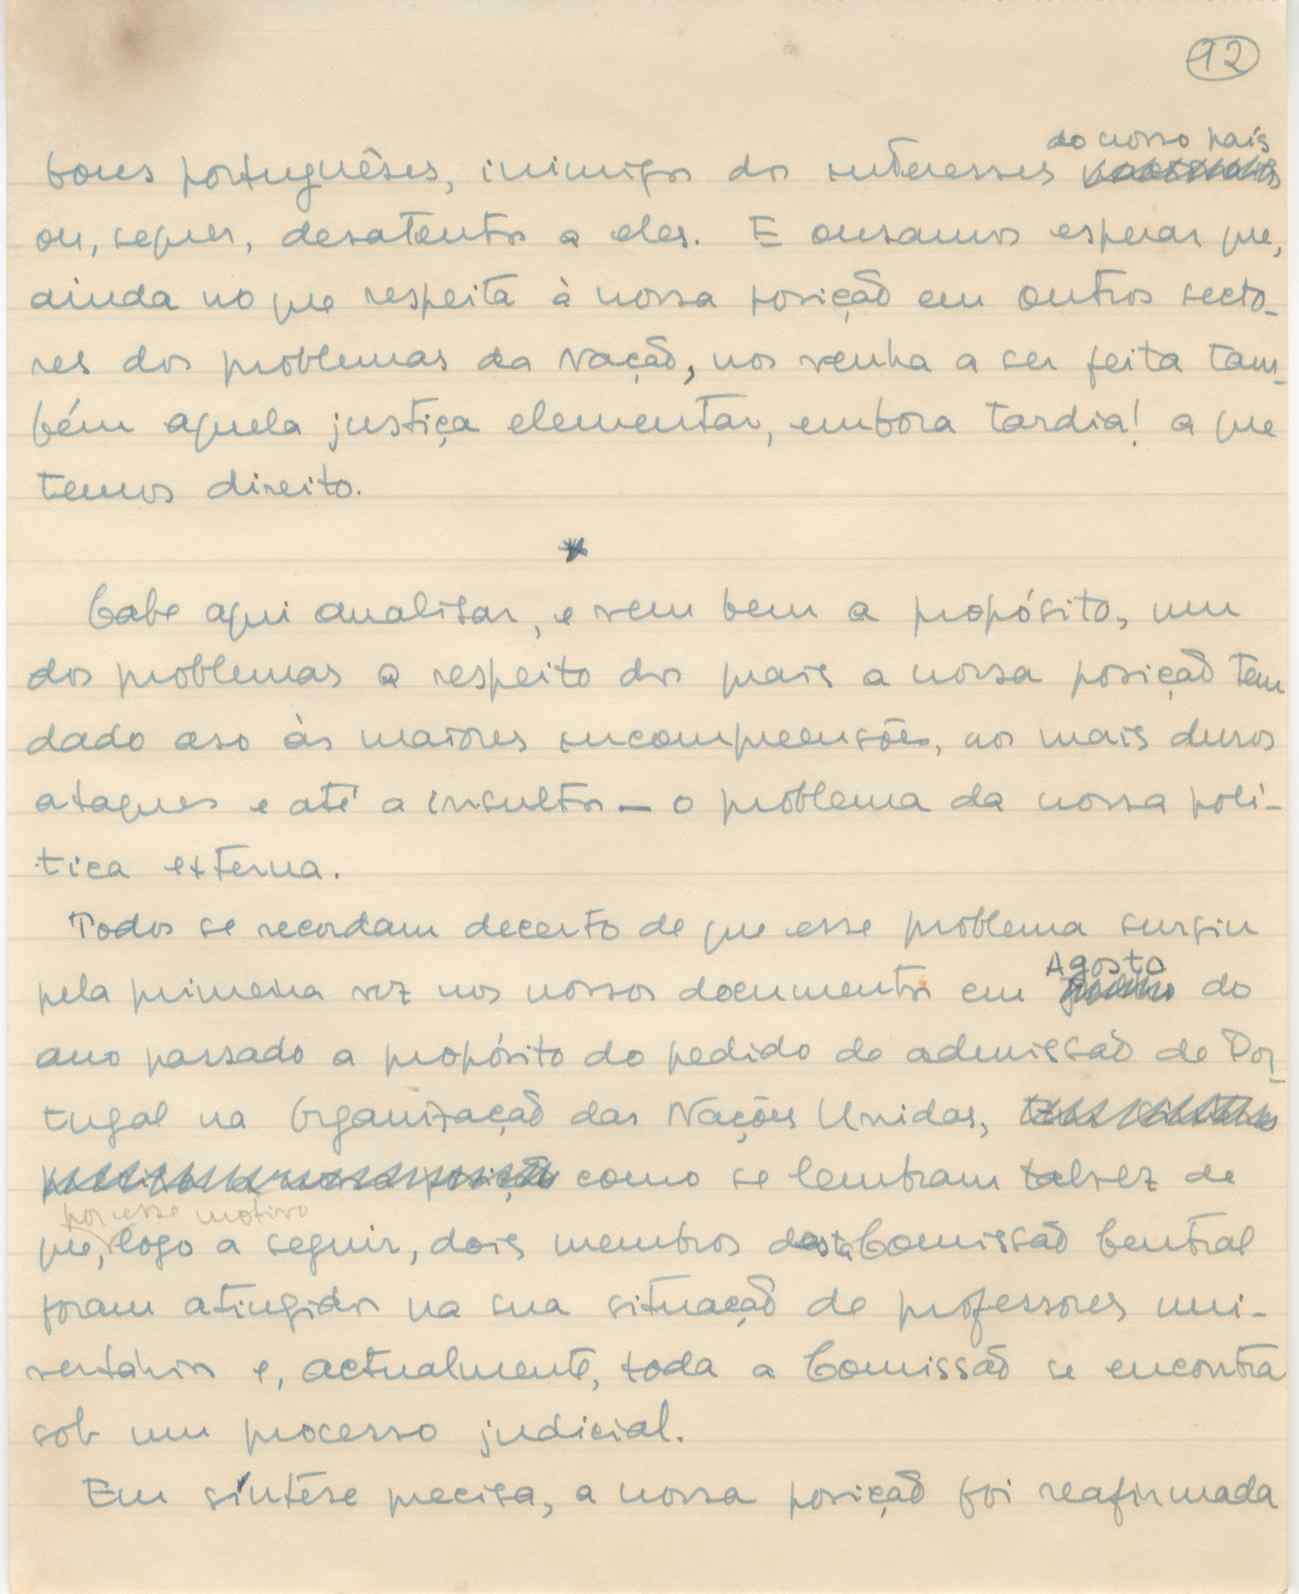 12
do nosso país
bons portuguêses, inimigos dos interesses
ou, sequer, desatentos a eles. E ousamos esperar que,
ainda no que respeita à nossa posição em outros secto-
res dos problemas da Nação, nos venha a ser feita tam-
bém aquela justiça elementar, embora tardia! a que
temos direito.
*
Cabe aqui analisar, e vem bem a propósito, um
dos problemas a respeito dos quais a nossa posição tem
dado aso às maiores incompreensões, aos mais duros
ataques e até a insultos — o problema da nossa polí-
tica externa.
Todos se recordam decerto de que esse problema surgiu
Agosto
pela primeira vez nos nossos documentos em do
ano passado a propósito do pedido de admissão de Por-
tugal na Organização das Nações Unidas,
como se lembram talvez de
por esse motivo
que, logo a seguir, dois membros desta Comissão Central
foram atingidos na sua situação de professores uni-
versitários e, actualmente, toda a Comissão se encontra
sob um processo judicial.
Em síntese precisa, a nossa posição foi reafirmada